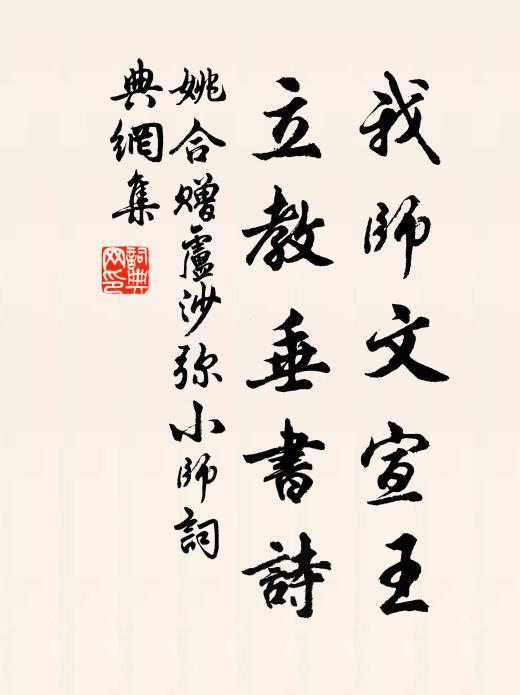 我師文宣王
立教垂書詩
姚合贈盧沙弥小師詞
典網集
詞典
网印